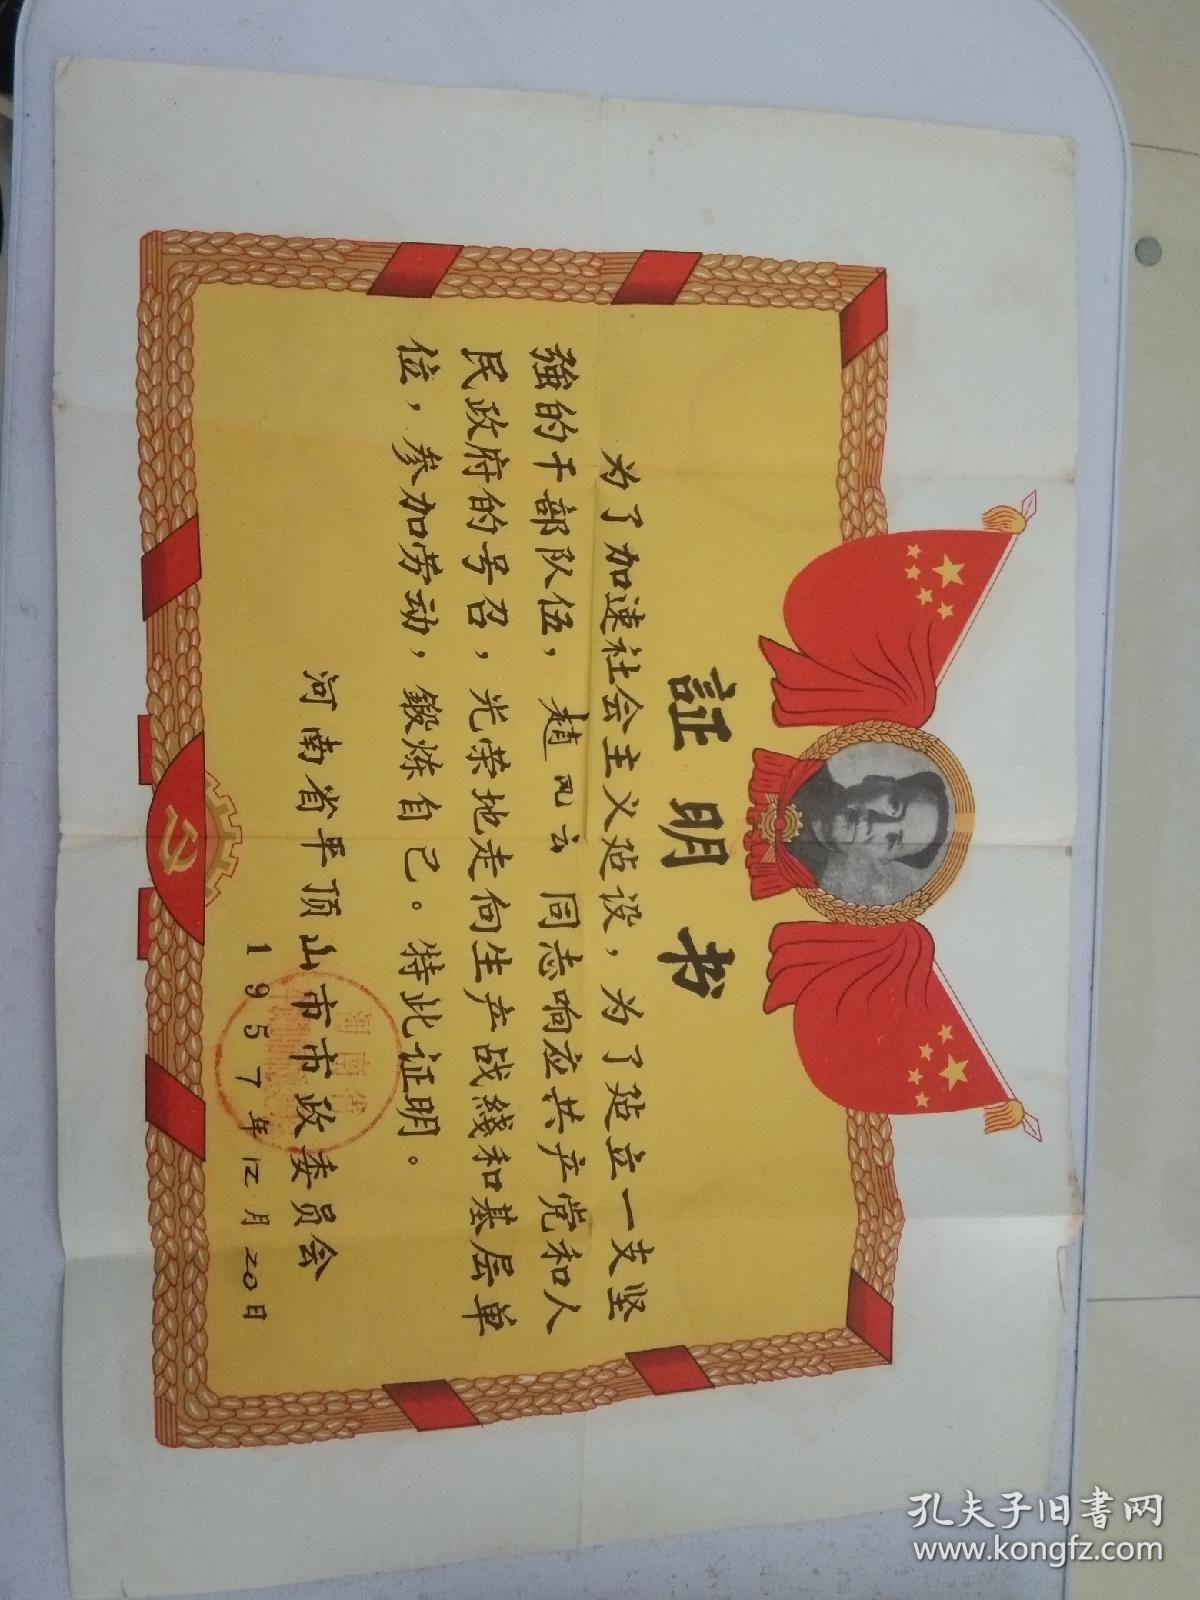 証明书
为了加速社会主义建設，为了建立一支坚
強的干部队伍，趙凤云同志响应共产党和人
民政府的号召，光荣地走向生产战綫和基层单
位，参加劳动，鍛炼自己。特此证明。
河南省平顶山市市政委員会
1957年12月20日
河南省
孔夫子旧书网
www.kongfz.com